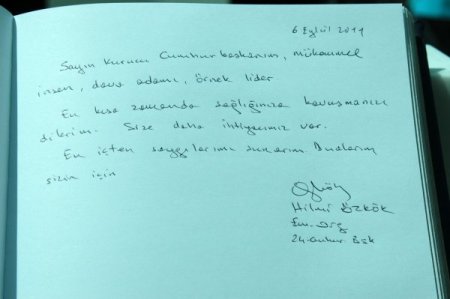 6 Eylül 2011
Sayın Kurucu Cumhurbaşkanım, mükemmel
insan, dava adamı, örnek lider
En kısa zamanda sağlığınıza kavuşmanızı
dilerim. Size daha ihtiyacımız var.
En içten saygılarımı sunarım. Dualarım
sizin için
Hilmi ÖZKÖK
Em. Org